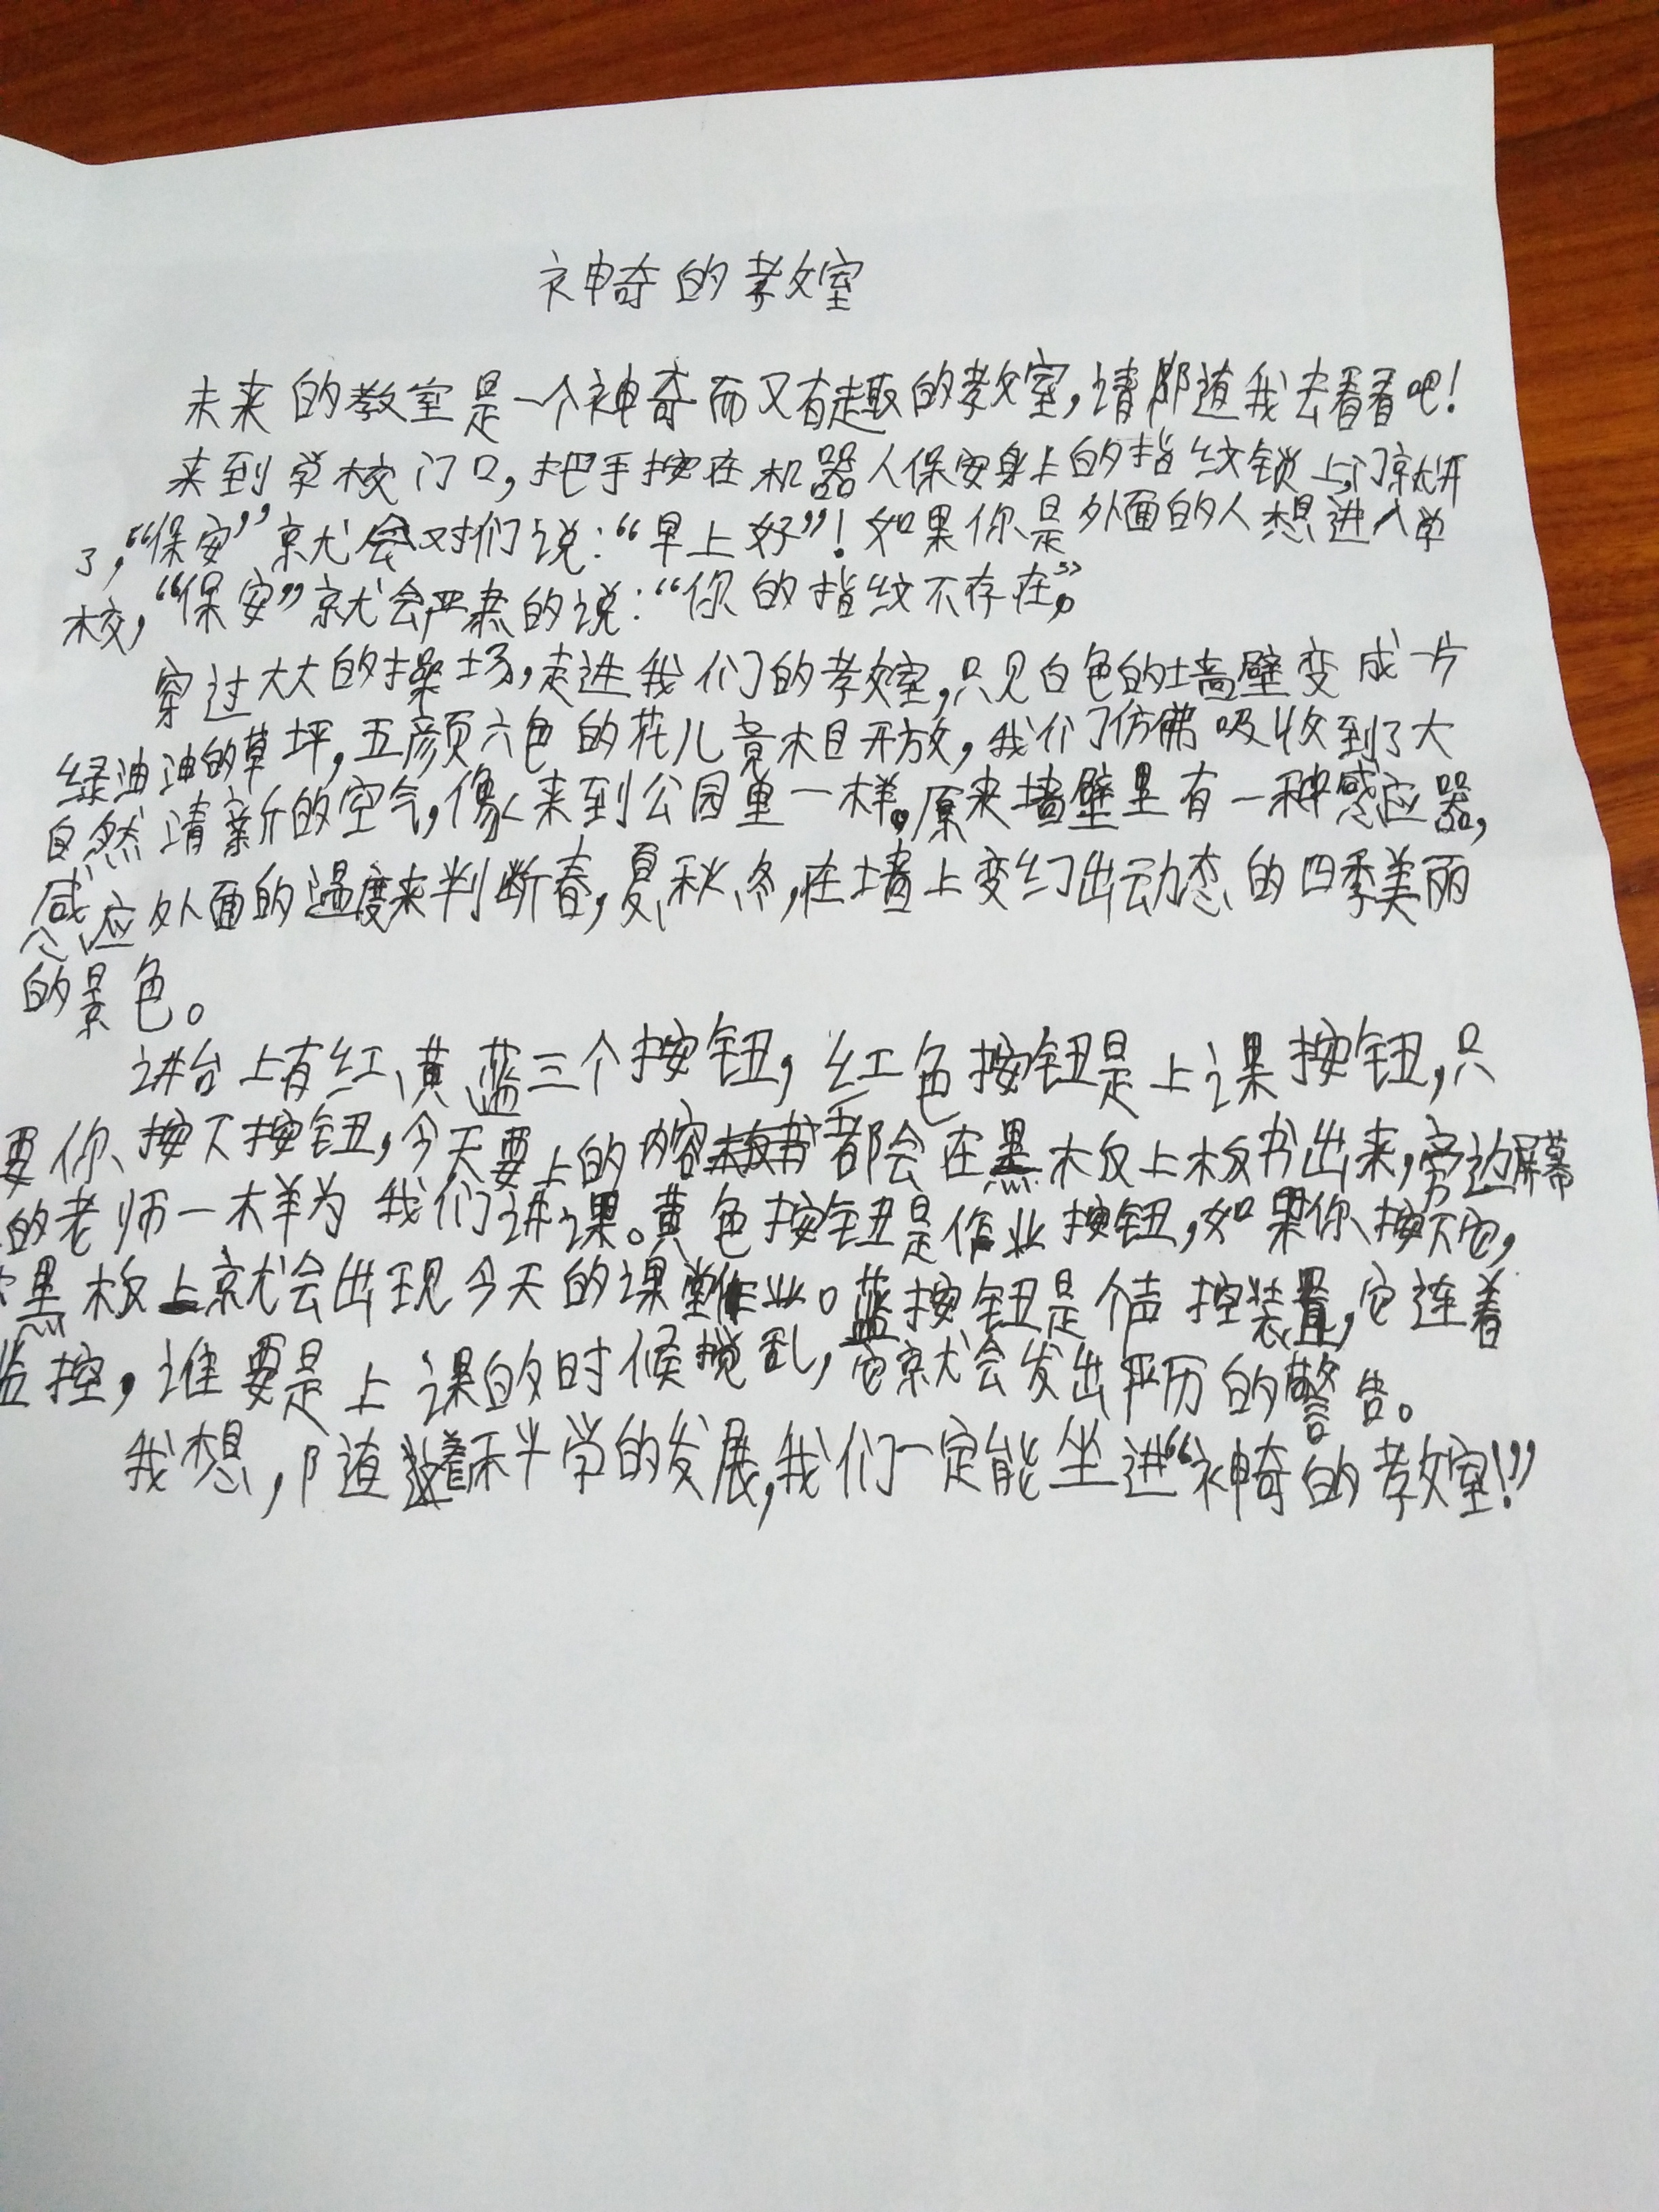 神奇的教室
未来的教室是一个神奇而又有趣的教室,请随我去看看吧!
来到学校门口,把手按在机器人保安身上的指纹锁上,门就开
了,“保安”就会对们说:“早上好”!如果你是外面的人想进入学
校,“保安”就会严肃的说:“你的指纹不存在。”
穿过大大的操场,走进我们的教室,只见白色的墙壁变成一片
绿油油的草坪,五颜六色的花儿竟相开放,我们仿佛吸收到了大
自然清新的空气,像来到公园里一样。原来墙壁里有一种感应器,
感应外面的温度来判断春,夏、秋、冬,在墙上变幻出动态的四季美丽
的景色。
讲台上有红、黄、蓝三个按钮,红色按钮是上课按钮,只
要你按下按钮,今天要上的内容都会在黑板上板书出来,旁边屏幕
的老师一样为我们讲课。黄色按钮是作业按钮,如果你按下它,
黑板上就会出现今天的课堂作业。蓝按钮是个声控装置,它连着
监控,谁要是上课的时候搅乱,它就会发出严历的警告。
我想,随着科学的发展,我们一定能坐进“神奇的教室!”